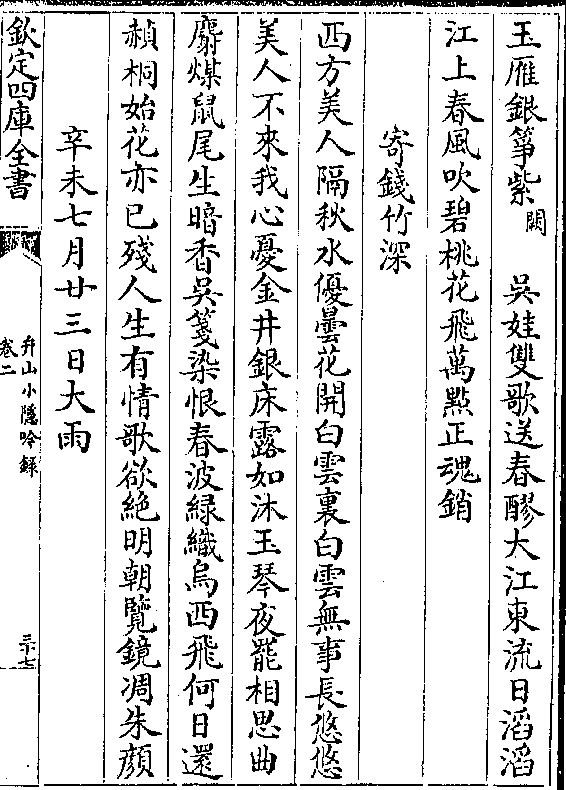 玉雁銀箏紫闕　吳娃雙歌送春醪大江東流日滔滔
江上春風吹碧桃花飛萬㸃正魂銷
寄錢竹深
西方美人隔秋水優曇花開白雲裏白雲無事長悠悠
美人不來我心憂金井銀床露如沐玉琴夜罷相思曲
麝煤鼠尾生暗香吳箋染恨春波緑織烏西飛何日還
赬桐始花亦已殘人生有情歌欲絶明朝覽鏡凋朱顔
辛未七月廿三日大雨
欽定四庫全書
弁山小隱吟録
卷二
三十七